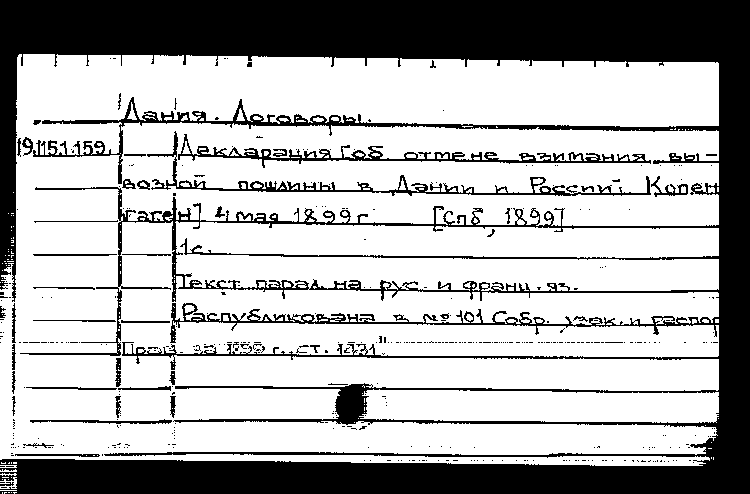 Дания. Договоры.
19.115.1.159. Декларация [об отмене взимания вы-
возной пошлины в Дании и России; Копен
гаген] 4 мая 1899 г [Спб, 1899]
1 с.
Текст парал. на рус. и франц. яз.
Распубликована в № 101 Собр. узак. и распор
Прав. за 1899 г., ст. 1431"